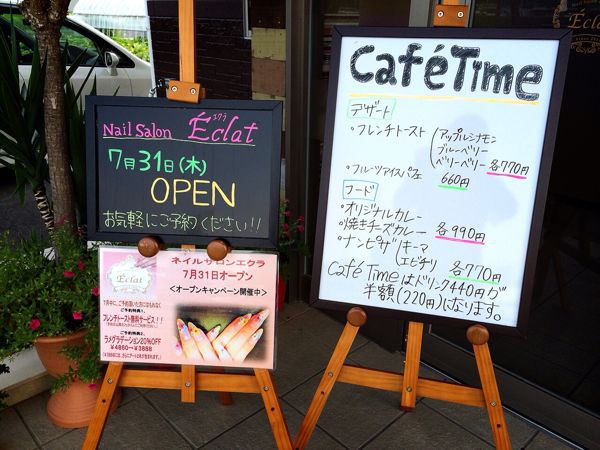 Nail Salon Éclat
エクラ
7月31日(木)
OPEN
お気軽にご予約ください!!
Éclat
ネイルサロンエクラ
7月31日オープン
<オープンキャンペーン開催中>
7月中に、ご予約頂いた方にはもれなく
ご予約特典1.
フレンチトースト無料サービス!!
ご予約特典2.
ラメグラデーション20%OFF
¥4860→¥3888
Café Time
デザート
・フレンチトースト
アップルシナモン
ブルーベリー
ベリーベリー 各770円
・フルーツアイスパフェ
660円
フード
・オリジナルカレー
・焼きチーズカレー 各990円
・ナンピザ キーマ
エビチリ 各770円
Café Timeはドリンク440円が
半額(220円)になります。
Éclat